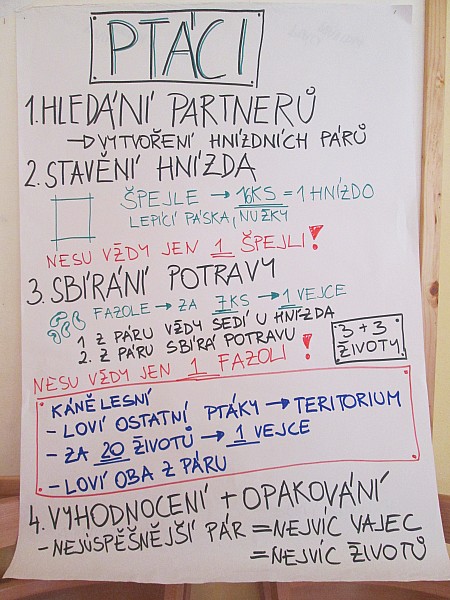 PTÁCI
1. HLEDÁNÍ PARTNERŮ
→ VYTVOŘENÍ HNÍZDNÍCH PÁRŮ
2. STAVĚNÍ HNÍZDA
ŠPEJLE → 16KS = 1 HNÍZDO
LEPÍCÍ PÁSKA, NUŽKY
NESU VŽDY JEN 1 ŠPEJLI!
3. SBÍRÁNÍ POTRAVY
FAZOLE → ZA 7KS → 1 VEJCE
1 Z PÁRU VŽDY SEDÍ U HNÍZDA
2. Z PÁRU SBÍRÁ POTRAVU
3 + 3 ŽIVOTY
NESU VŽDY JEN 1 FAZOLI !
KÁNĚ LESNÍ
- LOVÍ OSTATNÍ PTÁKY → TERITORIUM
- ZA 20 ŽIVOTŮ → 1 VEJCE
- LOVÍ OBA Z PÁRU
4. VYHODNOCENÍ + OPAKOVÁNÍ
- NEJÚSPĚŠNĚJŠÍ PÁR = NEJVÍC VAJEC
= NEJVÍC ŽIVOTŮ